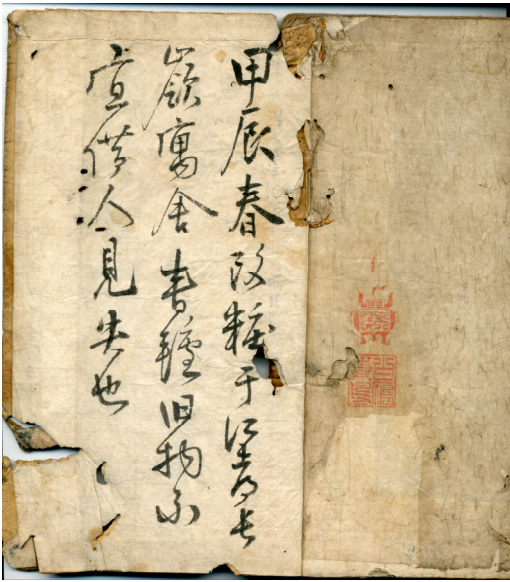 甲辰春改粧于長
嶺寓舍青氈旧物不
宜借人見失也